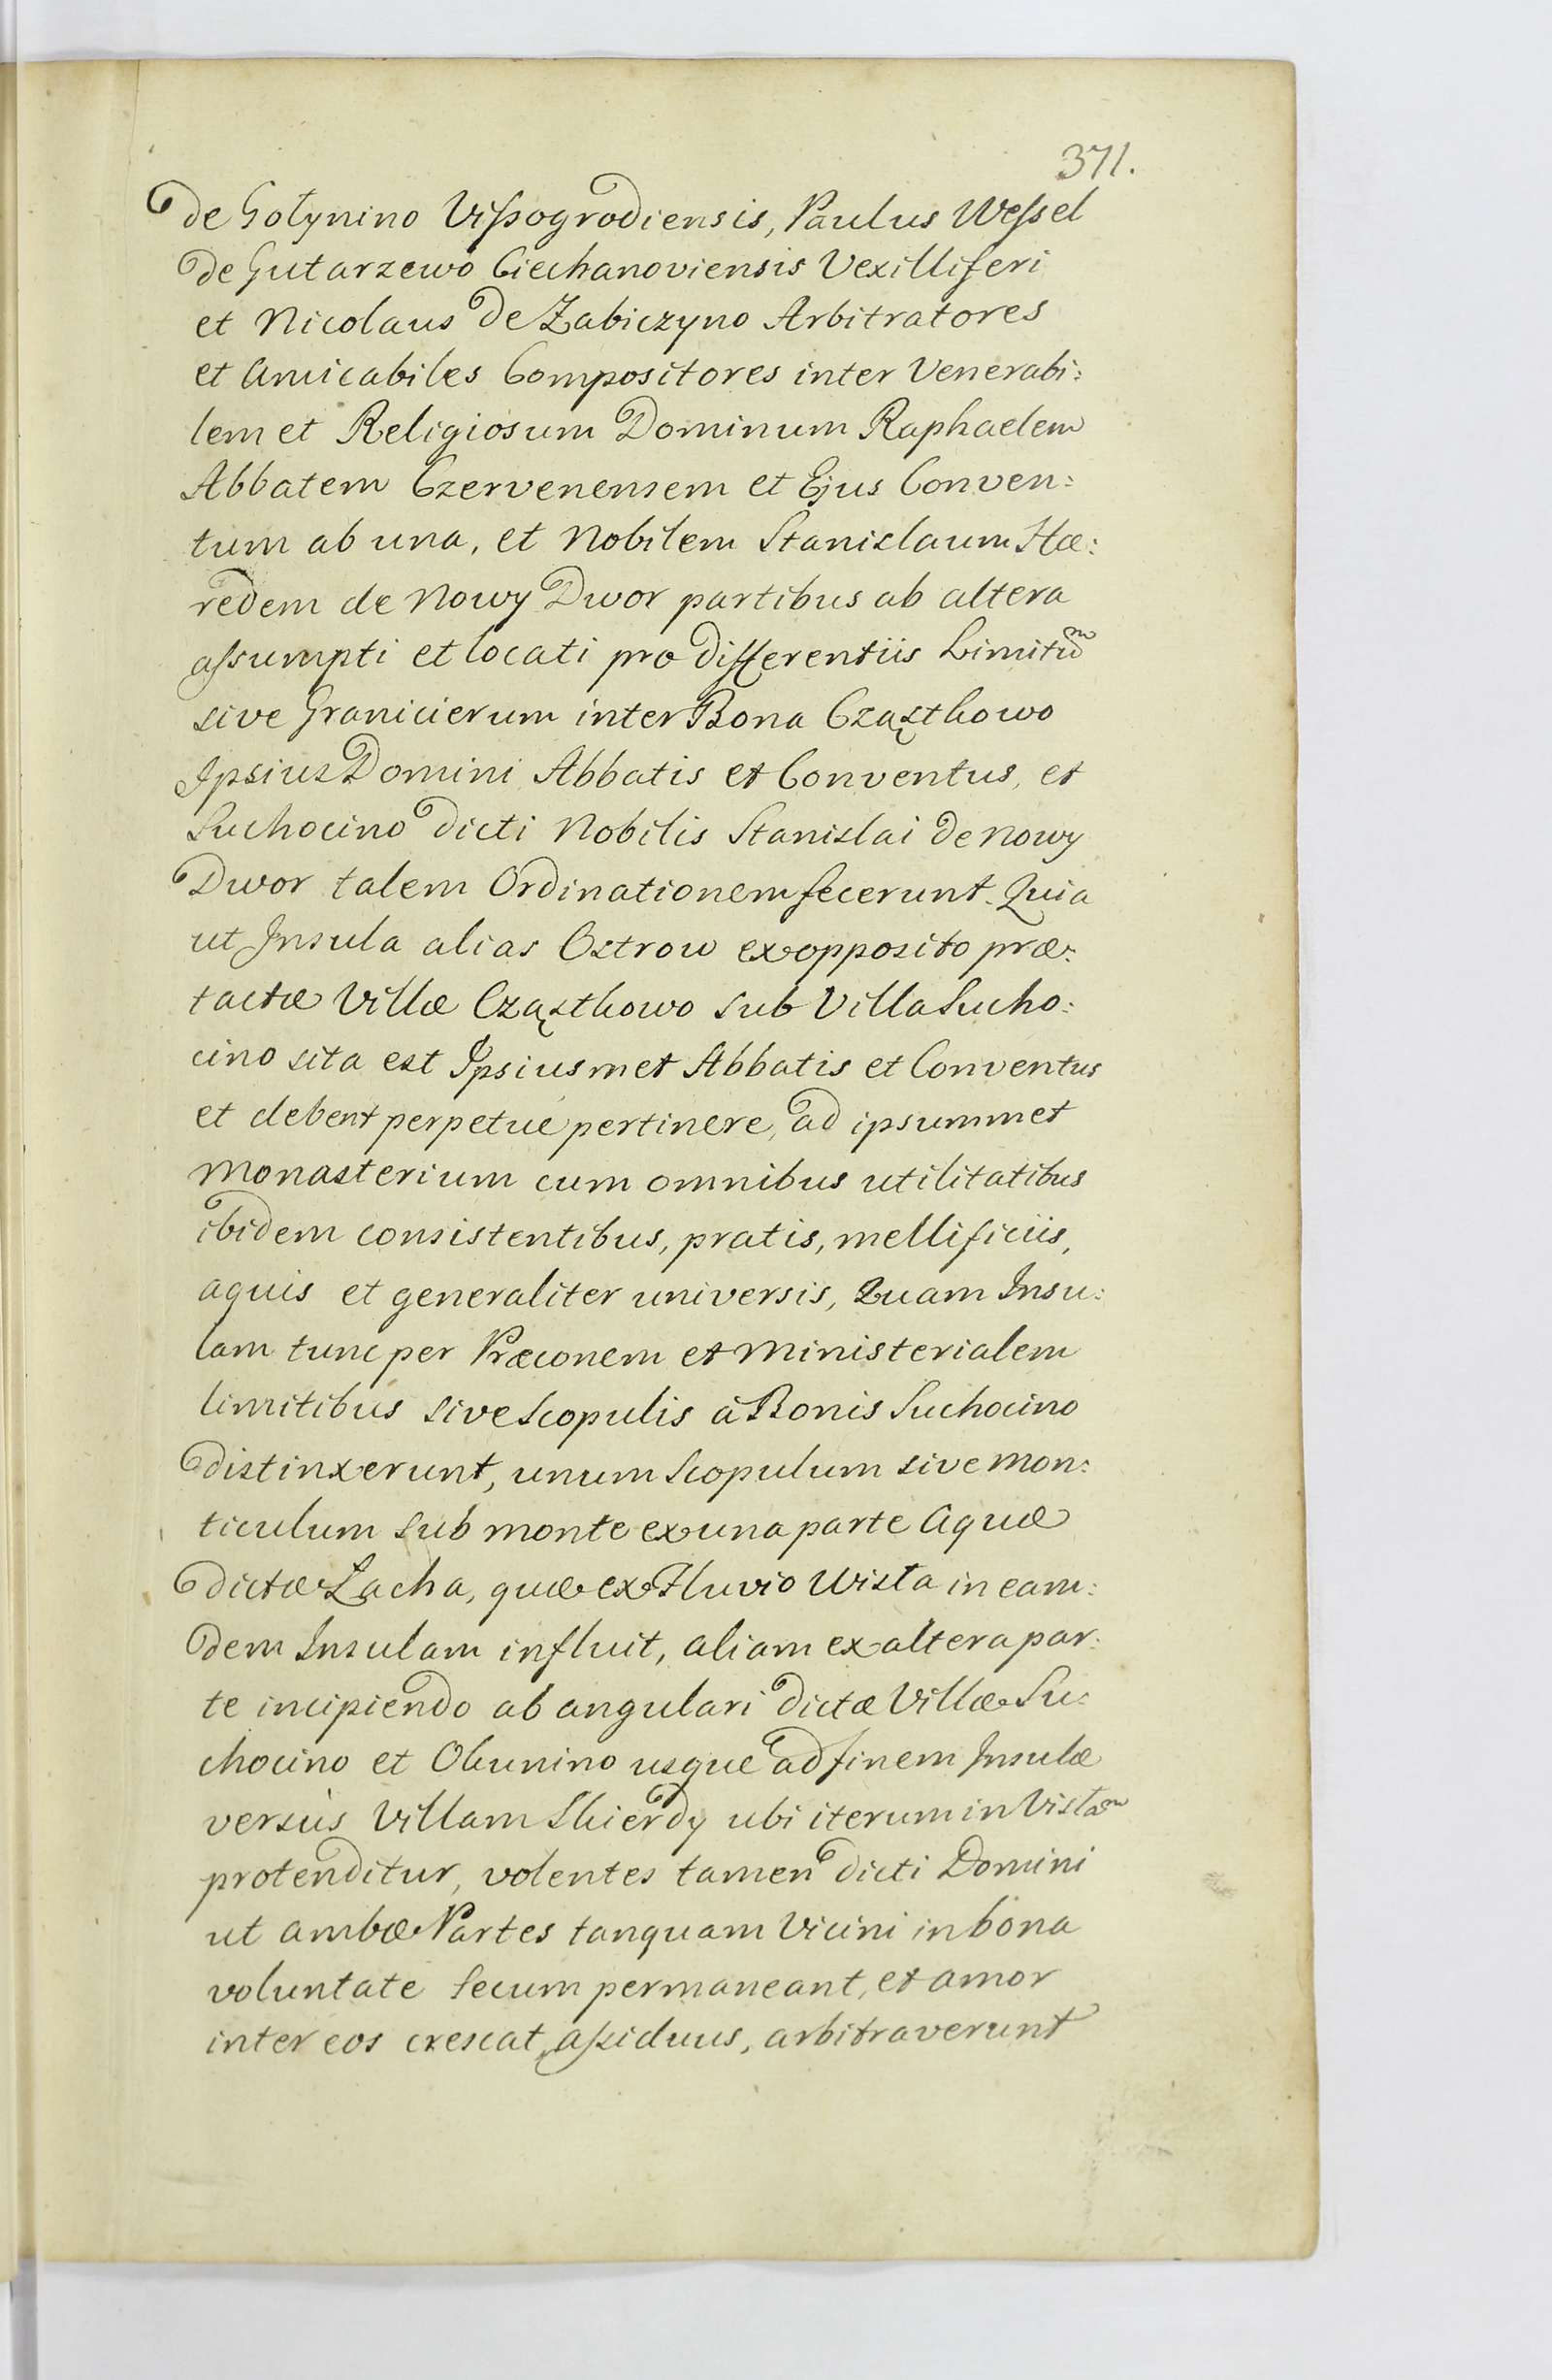 371.
de Gołynino Vissogrodiensis, Paulus Wessel
de Gutarzewo Ciechanoviensis Vexilliferi
et Nicolaus de Zabiczyno Arbitratores
et Amicabiles Compositores inter Venerabi:
lem et Religiosum Dominum Raphaelem
Abbatem Czervenensem et Ejus Conven:
tum ab una, et Nobilem Stanislaum Hæ:
redem de Nowy Dwor partibus ab altera
assumpti et locati pro differentiis Limitũm
sive Granicierum inter Bona Cząsthowo
Ipsius Domini Abbatis et Conventus, et
Suchocino dicti Nobilis Stanislai de Nowy
Dwor talem Ordinationem fecerunt. Quia
ut Insula alias Ostrow ex opposito præ:
tactæ Villæ Cząsthowo sub Villa Sucho:
cino sita est Ipsiusmet Abbatis et Conventus
et debent perpetue pertinere, ad ipsummet
Monasterium cum omnibus utilitatibus
ibidem consistentibus, pratis, mellificiis,
aquis et generaliter universis, Quam Insu:
lam tunc per Præconem et Ministerialem
limitibus sive Scopulis à Bonis Suchocino
distinxerunt, unum Scopulum sive Mon:
ticulum sub monte ex una parte Aquæ
dictæ Lacha, quæ ex Fluvio Wisła in eam:
dem Insulam influit, aliam ex altera par:
te incipiendo ab angulari dictæ Villæ Su:
chocino et Obunino usque ad finem Insulæ
versus Villam Skierdy ubi iterum in Vislam
protenditur, volentes tamen dicti Domini
ut ambæ Partes tanquam Vicini in bona
voluntate secum permaneant, et amor
inter eos crescat assiduus, arbitraverunt